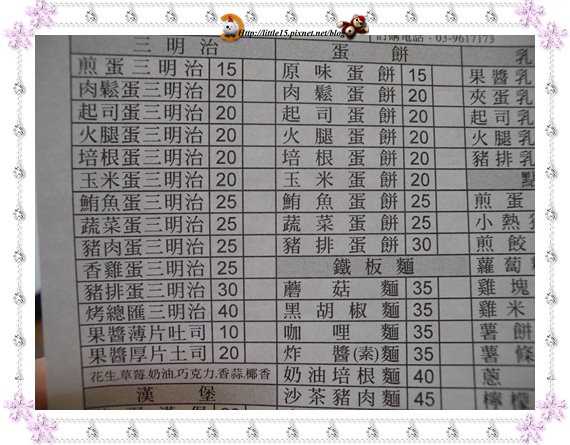 Http://little15.pixnet.net/blog
訂購電話:03-9617173
三明治
煎蛋三明治 15
肉鬆蛋三明治 20
起司蛋三明治 20
火腿蛋三明治 20
培根蛋三明治 20
玉米蛋三明治 20
鮪魚蛋三明治 25
蔬菜蛋三明治 25
豬肉蛋三明治 25
香雞蛋三明治 25
豬排蛋三明治 30
烤總匯三明治 40
果醬薄片吐司 10
果醬厚片土司 20
花生.草莓.奶油.巧克力.香蒜.椰香
漢堡
蛋餅
原味蛋餅 15
肉鬆蛋餅 20
起司蛋餅 20
火腿蛋餅 20
培根蛋餅 20
玉米蛋餅 20
鮪魚蛋餅 25
蔬菜蛋餅 25
豬排蛋餅 30
鐵板麵
蘑菇麵 35
黑胡椒麵 35
咖哩麵 35
炸醬(素)麵 35
奶油培根麵 40
沙茶豬肉麵 45
乳
果醬乳
夾蛋乳
起司乳
火腿乳
豬排乳
點
煎蛋
小熱
煎餃
蘿蔔
雞塊
雞米
薯餅
薯條
蔥
檸檬